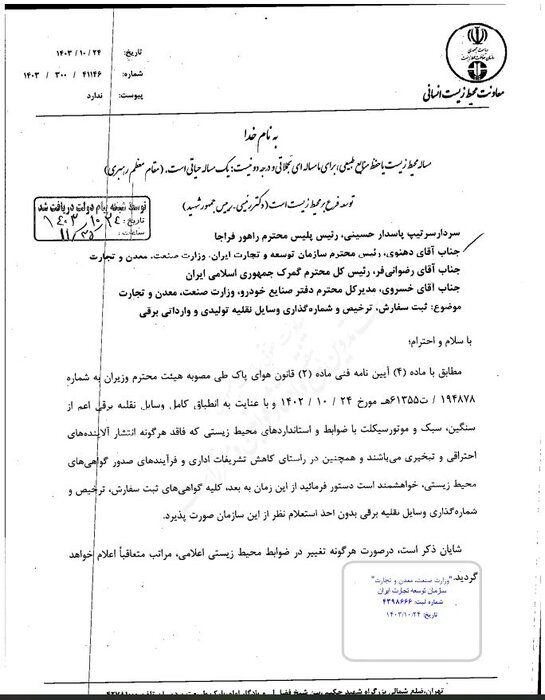 ریاست جمهوری
سازمان حفاظت محیط زیست
معاونت محیط زیست انسانی
تاریخ: ۱۴۰۳/۱۰/۲۴
شماره: ۴۱۱۴۶ / ۳۰۰ / ۱۴۰۳
پیوست: ندارد
به نام خدا
مساله محیط زیست یا حفظ منابع طبیعی، برای ما مساله ای تجملاتی و درجه دو نیست؛ یک مساله حیاتی است. (مقام معظم رهبری)
توسعه فرع بر محیط زیست است (دکتر رئیسی، رییس جمهور شهید)
توسط شیخه پیام دولت دریافت شد
تاریخ: ۱۴۰۳/۱۰/۲۴
ساعت: ۱۱/۳۵
سردار سرتیپ پاسدار حسینی، رئیس پلیس محترم راهور فراجا
جناب آقای دهنوی، رئیس محترم سازمان توسعه و تجارت ایران، وزارت صنعت، معدن و تجارت
جناب آقای رضوانی‌فر، رئیس کل محترم گمرک جمهوری اسلامی ایران
جناب آقای خسروی، مدیرکل محترم دفتر صنایع خودرو، وزارت صنعت، معدن و تجارت
موضوع: ثبت سفارش، ترخیص و شماره‌گذاری وسایل نقلیه تولیدی و وارداتی برقی
با سلام و احترام؛
مطابق با ماده (۴) آیین نامه فنی ماده (۲) قانون هوای پاک طی مصوبه هیئت محترم وزیران به شماره
۱۹۴۸۷۸ /ت۶۱۳۵۵هـ مورخ ۲۴ / ۱۰ / ۱۴۰۲ و با عنایت به انطباق کامل وسایل نقلیه برقی اعم از
سنگین، سبک و موتورسیکلت با ضوابط و استانداردهای محیط زیستی که فاقد هرگونه انتشار آلاینده‌های
احتراقی و تبخیری می‌باشند و همچنین در راستای کاهش تشریفات اداری و فرآیندهای صدور گواهی‌های
محیط زیستی، خواهشمند است دستور فرمائید از این زمان به بعد، کلیه گواهی‌های ثبت سفارش، ترخیص و
شماره‌گذاری وسایل نقلیه برقی بدون اخذ استعلام نظر از این سازمان صورت پذیرد.
شایان ذکر است، درصورت هرگونه تغییر در ضوابط محیط زیستی اعلامی، مراتب متعاقباً اعلام خواهد
گردید.
"وزارت صنعت، معدن و تجارت"
سازمان توسعه تجارت ایران
شماره ثبت: ۴۳۹۸۶۶۶
تاریخ: ۱۴۰۳/۱۰/۲۴
تهران، ضلع شمالی بزرگراه شهید حکیم، بین شیخ فضل ا...